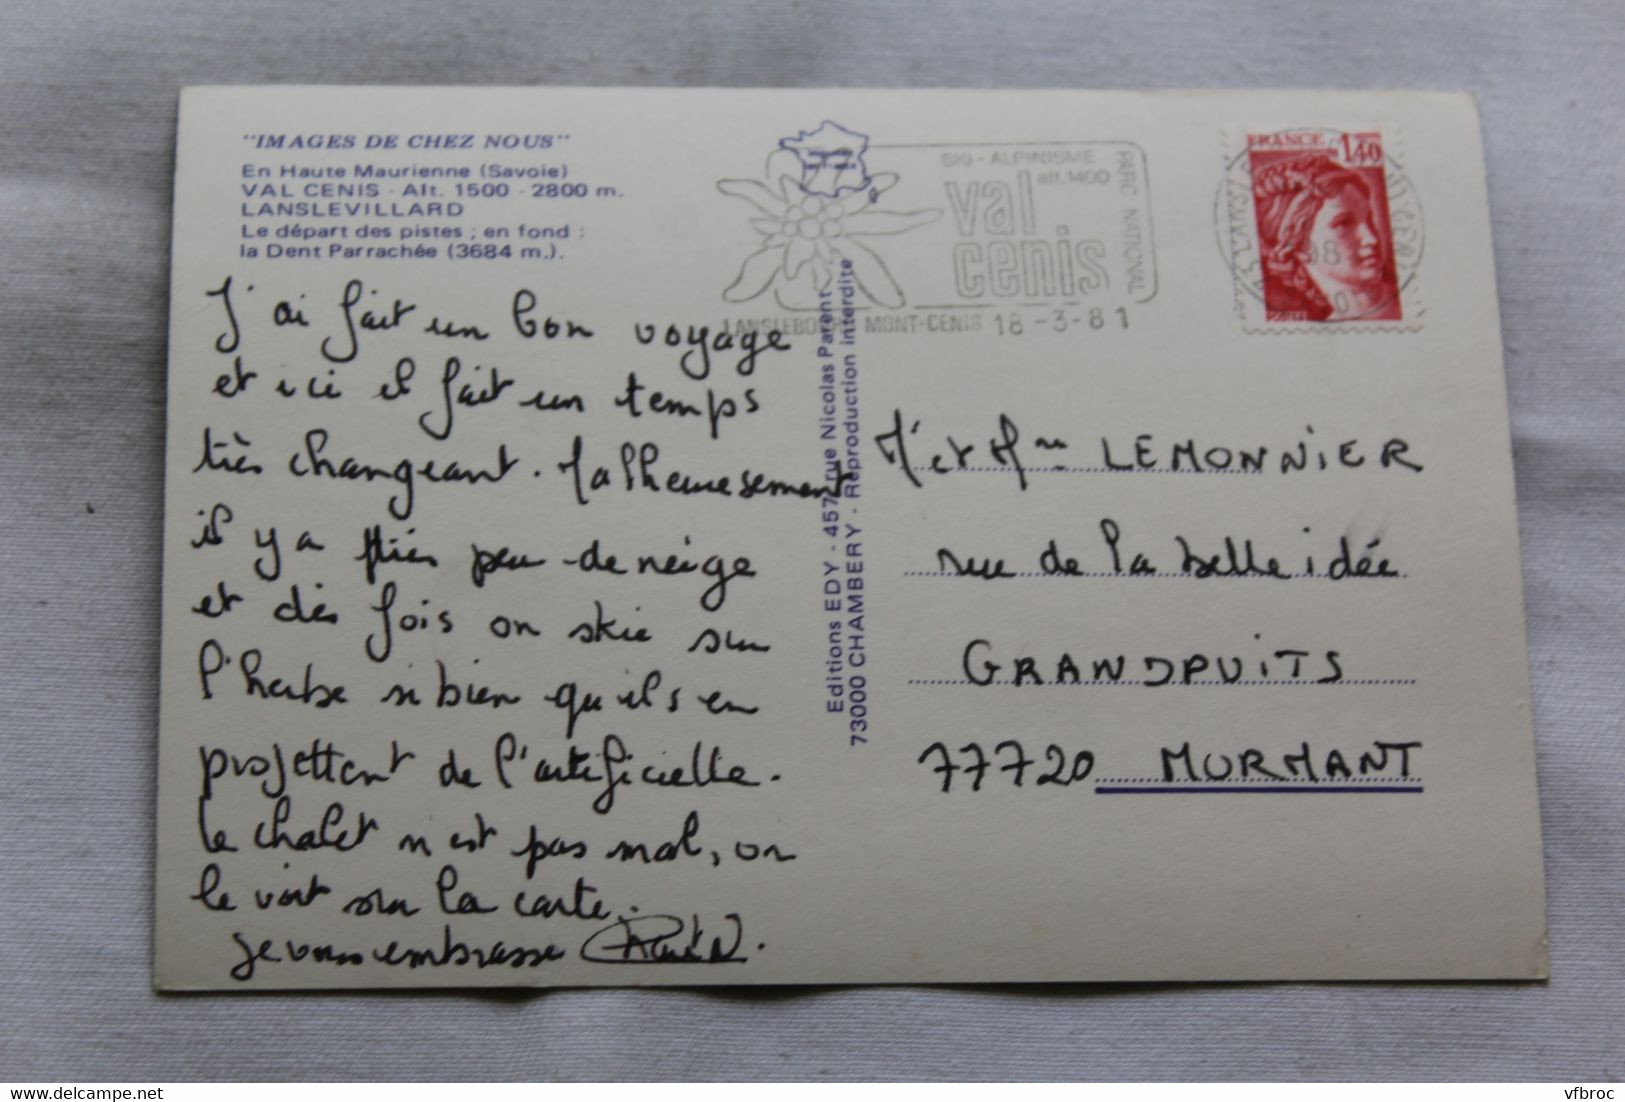 "IMAGES DE CHEZ NOUS"
En Haute Maurienne (Savoie)
VAL CENIS - Alt. 1500 - 2800 m.
LANSLEVILLARD
Le départ des pistes ; en fond :
la Dent Parrachée (3684 m.).
J'ai fait un bon voyage
et ici il fait un temps
très changeant. Malheureusement
il y a très peu de neige
et dès fois on skie sur
l'herbe si bien qu'ils en
projettent de l'artificielle.
Le chalet n'est pas mal, on
le voit sur la carte.
Je vous embrasse
Editions EDY - 457, rue Nicolas Parent
73000 CHAMBERY - Reproduction interdite
SKI - ALPINISME
alt. 1400
val
cenis
PARC NATIONAL
LANSLEBOURG MONT-CENIS 18-3-81
FRANCE 1,40
M. et Mme LEMONNIER
rue de la belle idée
GRANDPUITS
77720 MORMANT
delcampe.net
vfbroc